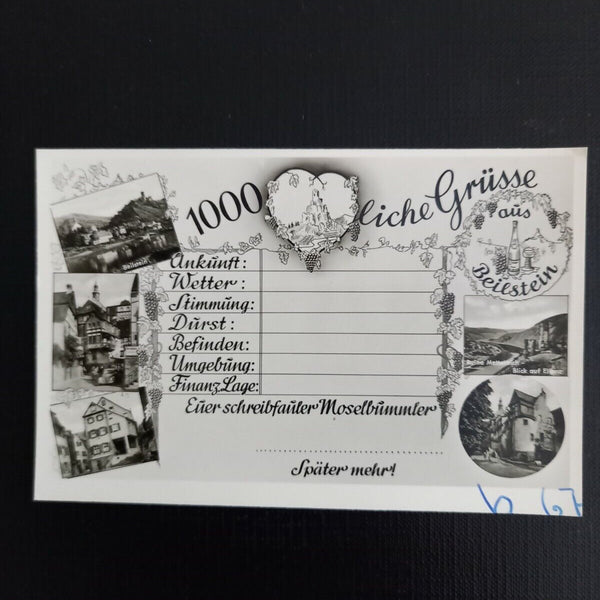 1000 liche Grüsse
aus
Beilstein
Beilstein
Ankunft:
Wetter:
Stimmung:
Durst:
Befinden:
Umgebung:
Finanz Lage:
Euer schreibfauler Moselbummler
Später mehr!
Blick auf